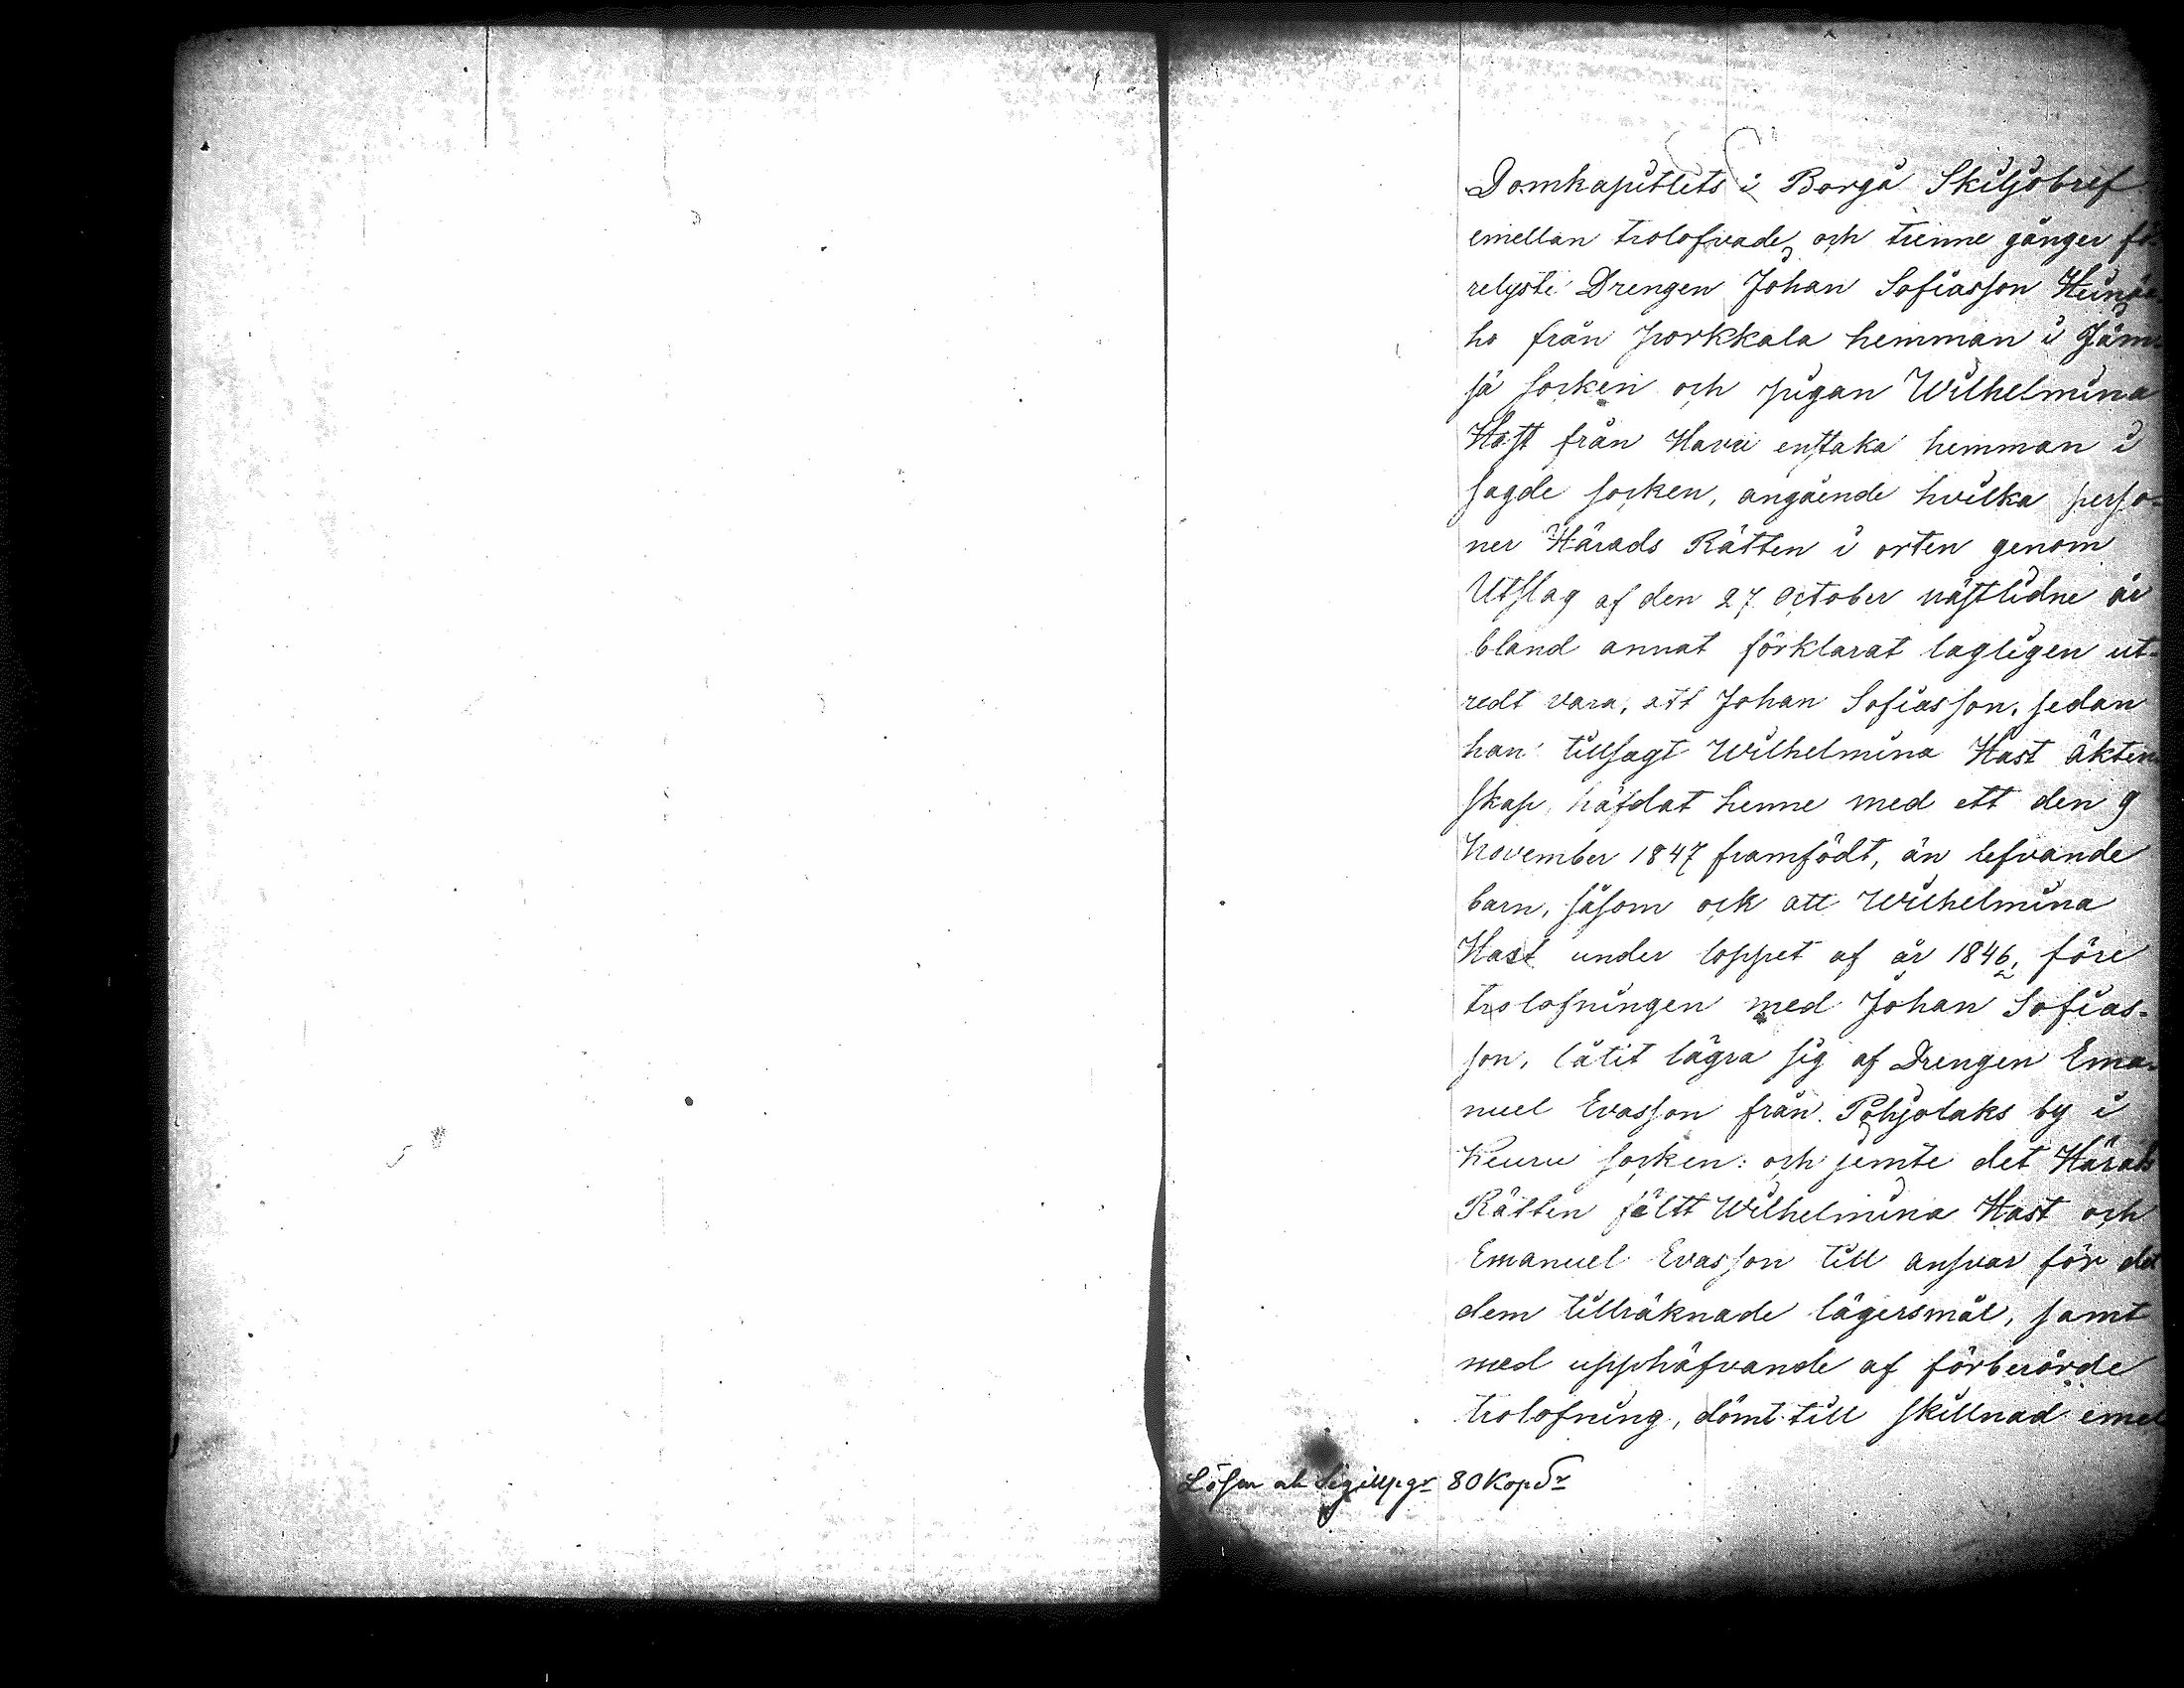 Domkapitlets i Borgå Skiljobref
emellan trolofvade och trenne gånger fö-
relyste Drengen Johan Sofiasson
ho från Porkkala hemman i Jäm-
sä socken och pigan Wilhelmina
Hast från Havu enstaka hemman i
sagde socken, angående hvilka perso-
ner Härads Rätten i orten genom
Utslag af den 27 October nästlidne år
bland annat förklarat lagligen ut-
redt vara, att Johan Sofiasson, sedan
han tillsagt Wilhelmina Hast äkten-
skap, häfdat henne med ett den 9
November 1847 framfödt, än lefvande
barn, såsom ock att Wilhelmina
Hast under loppet af år 1846, före
trolofningen med Johan Sofias-
son, låtit lägra sig af Drengen Ema-
nuel Evasson från Pohjolaks by i
Keuru socken: och jemte det Härads
Rätten fällt Wilhelmina Hast och
Emanuel Evasson till ansvar för det
dem tillräknade lägersmål, samt
med upphäfvande af förberörde
trolofning, dömt till skillnad emel
Lösen och Sigillpgr 80 Kop Sr